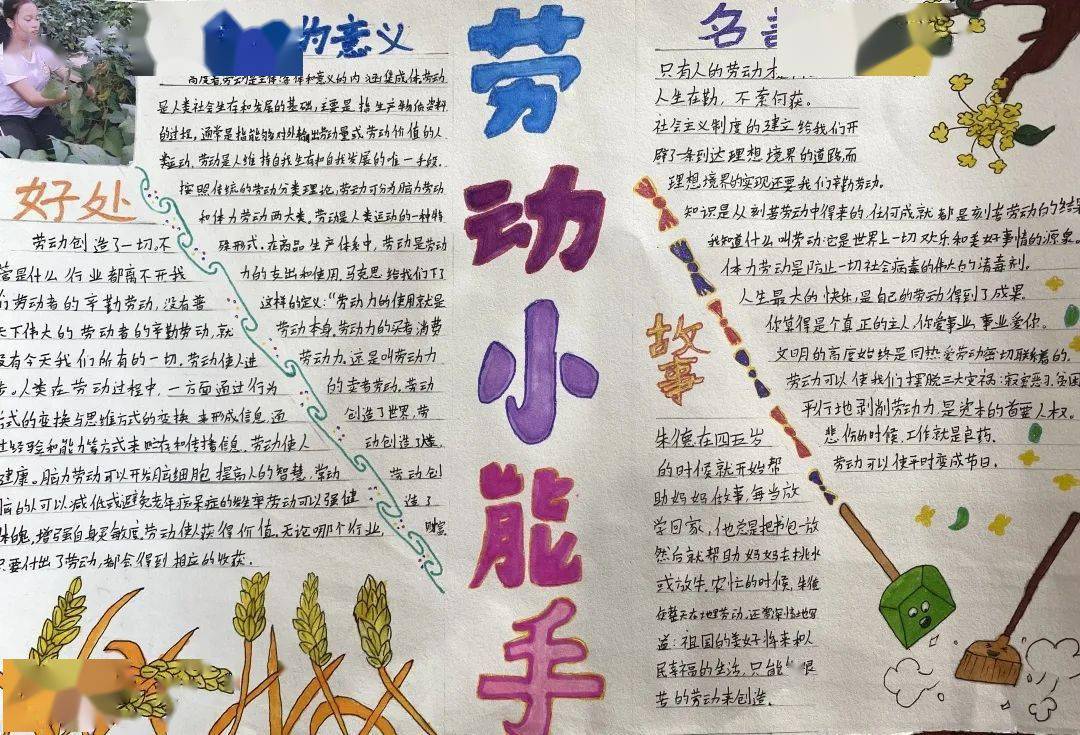 为意义
高度看劳动是主体、客体和意义的内涵集成体。劳动
是人类社会生存和发展的基础，主要是指生产物质资料
的过程，通常是指能够对外输出劳动量或劳动价值的人
类运动，劳动是人维持自我生存和自我发展的唯一手段。
按照传统的劳动分类理论，劳动可分为脑力劳动
和体力劳动两大类。劳动是人类运动的一种特
殊形式。在商品生产体系中，劳动是劳动
力的支出和使用。马克思给我们下了
这样的定义：“劳动力的使用就是
劳动本身。劳动力的买者消费
劳动力，这是叫劳动力
的卖者劳动。劳动
创造了世界，劳
动创造了
劳动创
造了
财富
好处
劳动创造了一切，不
管是什么行业都离不开我
们劳动者的辛勤劳动，没有普
天下伟大的劳动者的辛勤劳动，就
没有今天我们所有的一切。劳动使人进
步。人类在劳动过程中，一方面通过行为
方式的变换与思维方式的变换来形成信息，通
过经验和能力等方式来贮存和传播信息，劳动使人
健康。脑力劳动可以开发脑细胞，提高人的智慧，常动
脑的人可以减低或避免老年痴呆症的发生率劳动可以强健
体魄，增强自身灵敏度，劳动使人获得价值。无论哪个行业，
只要付出了劳动，都会得到相应的收获。
劳动小能手
名言
只有人的劳动才
人生在勤，不索何获。
社会主义制度的建立给我们开
辟了一条到达理想境界的道路，而
理想境界的实现还要我们辛勤劳动。
知识是从刻苦劳动中得来的，任何成就都是刻苦劳动的结果
我知道什么叫劳动：它是世界上一切欢乐和美好事情的源泉。
体力劳动是防止一切社会病毒的伟大的消毒剂。
人生最大的快乐，是自己的劳动得到了成果。
你算得是个真正的主人，你爱事业，事业爱你。
文明的高度始终是同热爱劳动密切联系着的。
劳动可以使我们摆脱三大灾祸：寂寞、恶习、贫困
平行地剥削劳动力，是资本的首要人权。
悲伤的时候，工作就是良药。
劳动可以使平时变成节日。
故事
朱德在四五岁
的时候就开始帮
助妈妈做事，每当放
学回家，他总是把书包一放
然后就帮助妈妈去挑水
或放牛。农忙的时候，朱德
在整天在地里劳动，还
道：祖国的美好将来和人
民幸福的生活，只能艰
苦的劳动来创造。